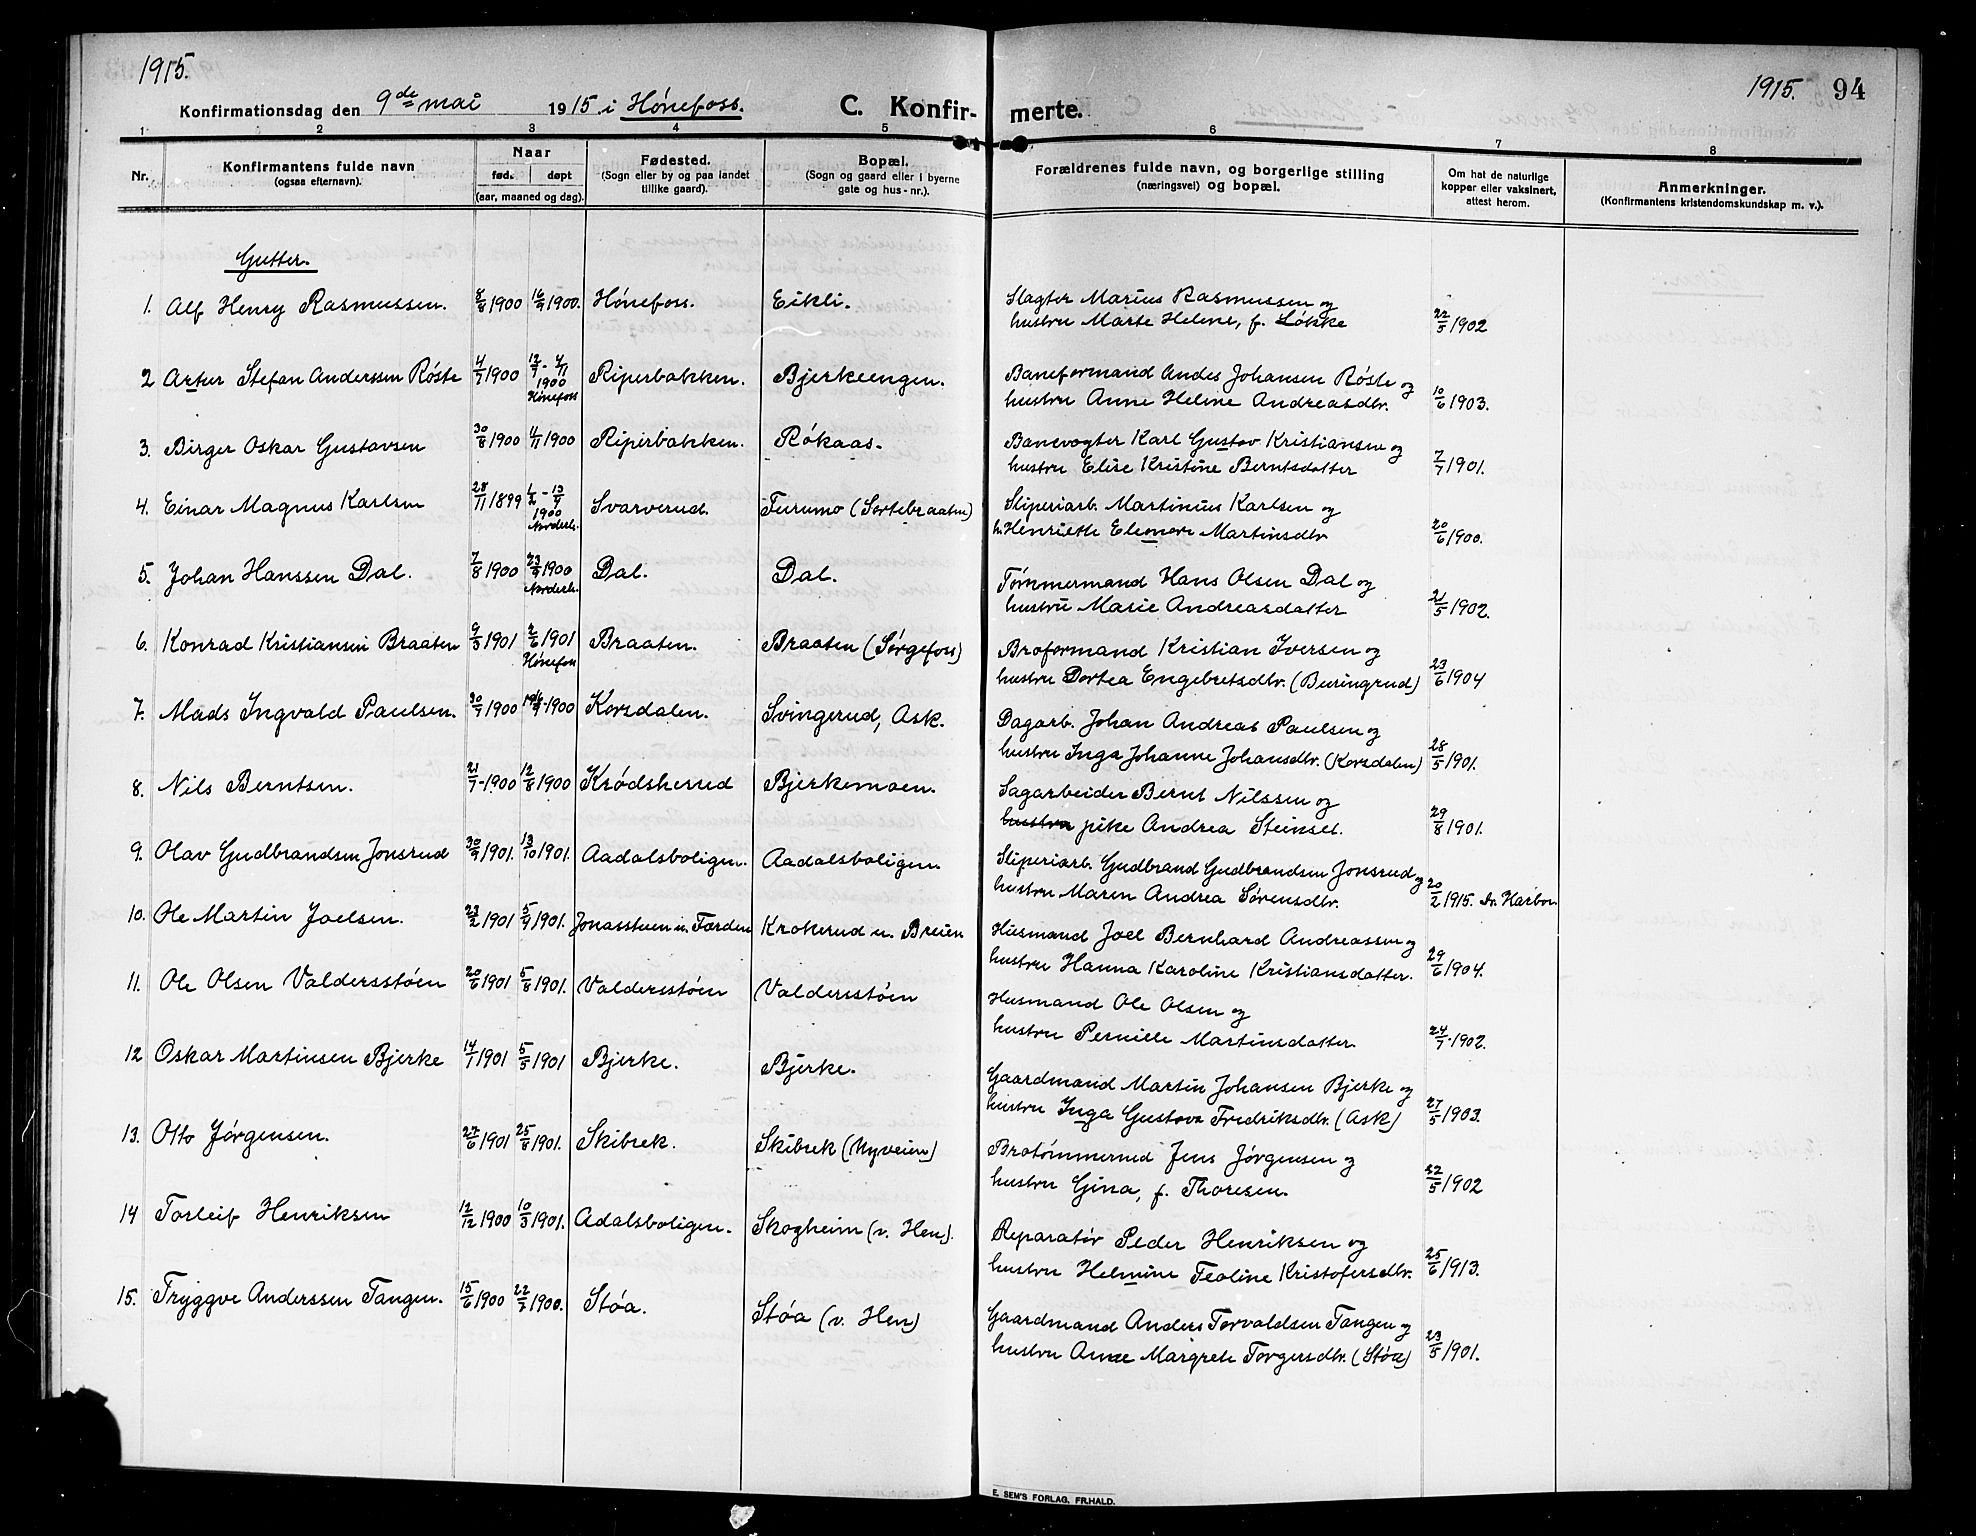 1915.
Konfirmationsdag den 9de mai 1915 i Hønefoss.
C. Konfir-
merte.
1915. 94
1 2 3 4 5 6 7 8
Nr.
Konfirmantens fulde navn
(ogsaa efternavn).
Naar
fød. døpt
(aar, maaned og dag).
Fødested.
(Sogn eller by og paa landet
tillike gaard).
Bopæl.
(Sogn og gaard eller i byerne
gate og hus-nr.).
Forældrenes fulde navn, og borgerlige stilling
(næringsvei) og bopæl.
Om hat de naturlige
kopper eller vaksinert,
attest herom.
Anmerkninger.
(Konfirmantens kristendomskundskap m. v.).
Gutter.
1. Alf Henry Rasmussen. 8/8 1900 16/9 1900. Hønefoss. Eikli.
Slagter Marius Rasmussen og
hustru Marte Helene, f. Løkke 22/5 1902
2 Artur Stefan Anderssen Røste 4/7 1900 12/7 - 4/11 1900 Hønefoss Riperbakken. Bjerkeengen.
Baneformand Andes Johansen Røste og
hustru Anne Helene Andreasdtr. 10/6 1903.
3. Birger Oskar Gustavsen 30/8 1900 4/11 1900 Riperbakken. Røkaas.
Banevogter Karl Gustav Kristiansen og
hustru Elise Kristine Berntsdatter 7/7 1901.
4. Einar Magnus Karlsen 28/11 1899 1/2 - 13/4 1900 Norderh. Svarverud. Furumo (Sortebraaten)
Sliperiarb. Martinius Karlsen og
h. Henriette Eleonore Martinsdtr 20/6 1900.
5. Johan Hanssen Dal. 7/8 1900 23/9 1900 Norderh. Dal. Dal.
Tømmermand Hans Olsen Dal og
hustru Marie Andreasdatter 21/5 1902.
6. Konrad Kristiansen Braaten 9/3 1901 2/6 1901 Hønefoss Braaten. Braaten (Sørgefoss)
Broformand Kristian Iversen og
hustru Dortea Engebretsdtr. (Buringrud) 23/6 1904
7. Mads Ingvald Paulsen. 30/7 1900 1900 Korsdalen. Svingerud, Ask.
Dagarb. Johan Andreas Paulsen og
hustru Inga Johanne Johansdtr. (Korsdalen) 28/5 1901.
8. Nils Berntsen. 21/7 - 1900 12/8 1900 Krødsherred Bjerkemoen.
Sagarbeider Bernt Nilssen og
hustru pike Andrea Steinsel. 29/8 1901.
9. Olav Gudbrandsen Jonsrud 30/9 1901. 13/10 1901. Aadalsboligen. Aadalsboligen.
Sliperiarb. Gudbrand Gudbrandsen Jonsrud og
hustru Maren Andrea Sørensdtr. 20/2 1915. Dr. Harboe.
10. Ole Martin Joelsen. 23/2 1901 5/4 1901. Jonasstuen u. Færden Krokerud u. Breien
Husmand Joel Bernhard Andreassen og
hustru Hanna Karoline Kristiansdatter. 29/6 1904.
11. Ole Olsen Valdersstøen 20/6 1901 5/8 1901. Valdersstøen Valdersstøen
Husmand Ole Olsen og
hustru Pernille Martinsdatter. 24/7 - 1902.
12 Oskar Martinsen Bjerke 14/1 1901 5/5 1901 Bjerke. Bjerke.
Gaardmand Martin Johansen Bjerke og
hustru Inga Gustava Fredriksdtr. (Ask) 27/5 1903.
13. Otto Jørgensen. 27/6 1901 25/8 1901. Skibrek. Skibrek (Nyveien)
Brotømmermd Jens Jørgensen og
hustru Gina, f. Thoresen. 22/5 1902
14 Torleif Henriksen 12/12 1900 10/3 1901. Adalsboligen. Skogheim (v. Hen).
Reparatør Peder Henriksen og
hustru Helmine Teoline Kristofersdtr. 25/6 1913.
15. Tryggve Anderssen Tangen. 15/6 1900 22/7 1900. Støa. Støa (v. Hen)
Gaardmand Anders Torvaldsen Tangen og
hustru Anne Margrete Torgersdtr. (Støa) 23/5 1901.
E. SEM'S FORLAG, FR.HALD.